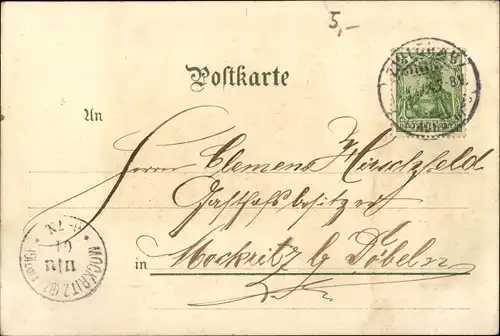 5,-
Postkarte
An
Herrn Clemens Hirschfeld
Gasthofsbesitzer
in Mockritz b/ Döbeln
MOCKRITZ
01